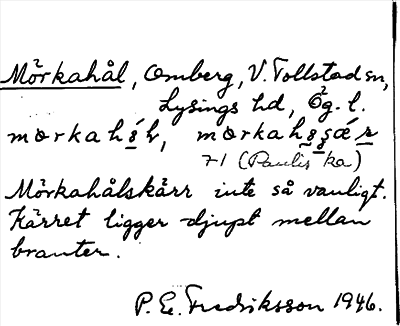 Mörkahål, Omberg, V. Tollstad sn,
Lysings hd, Ög. l.
71 (Paulis ka)
Mörkahålskärr inte så vanligt.
Kärret ligger djupt mellan
branter.
P. E. Fredriksson 1946.